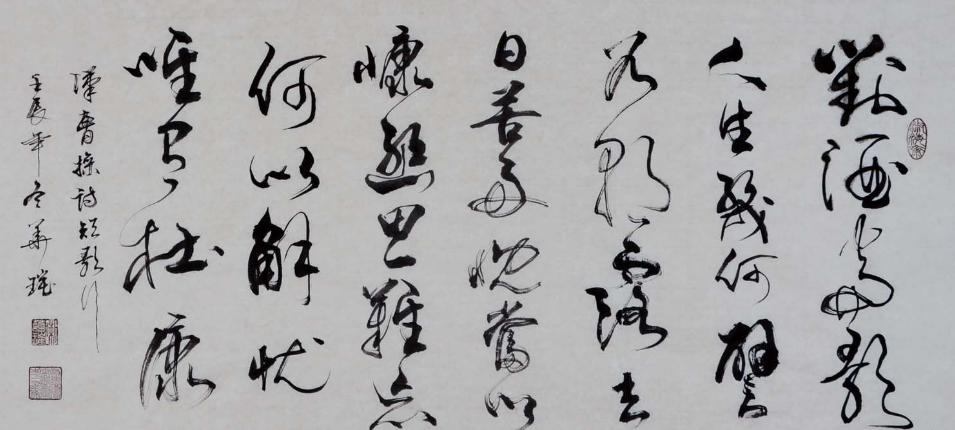 對酒當歌
人生幾何譬
如朝露去
日苦多慨當以
慷憂思難忘
何以解憂
唯有杜康
漢曹操詩短歌行
壬辰年冬華瑞